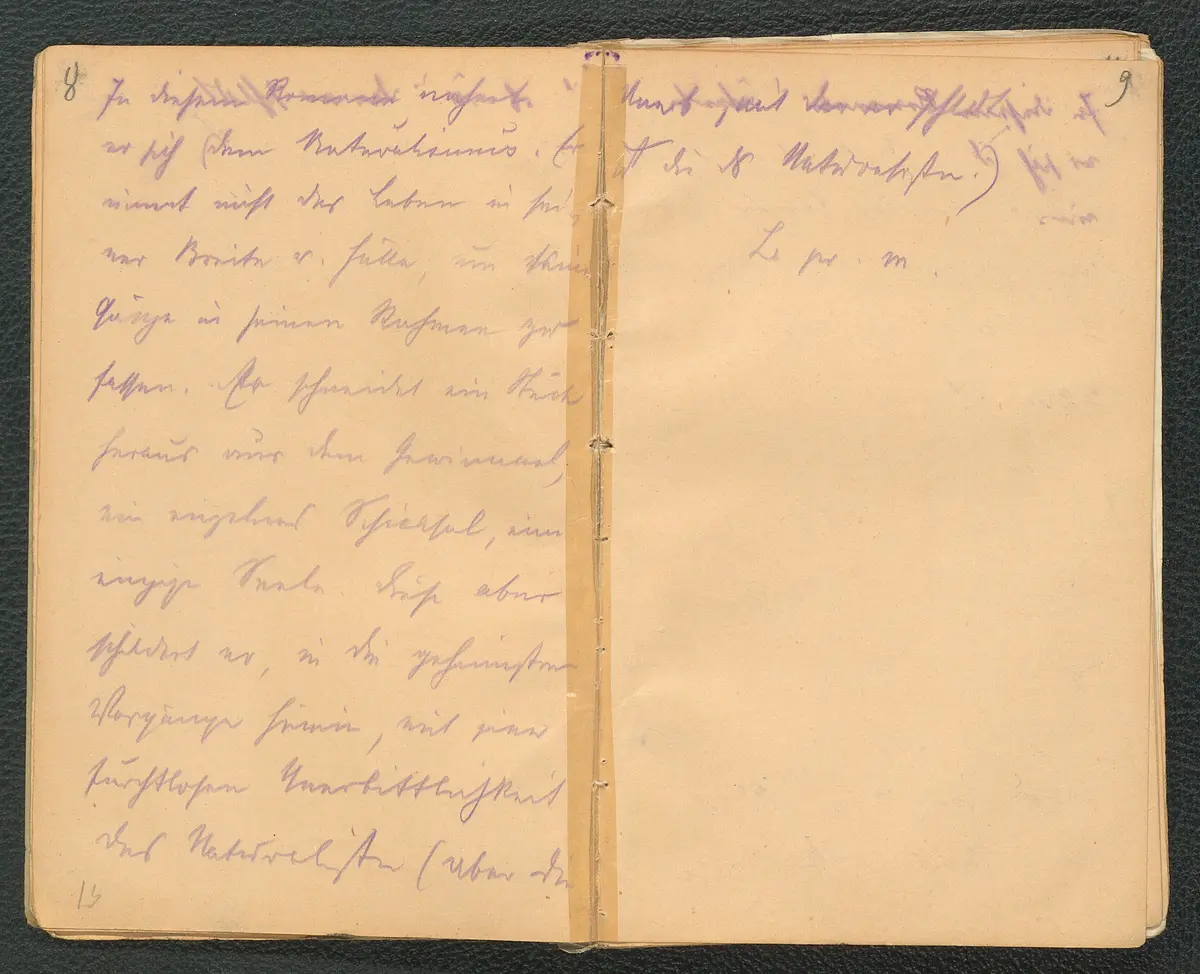 8
In diesem Romane nähert
er sich dem Naturalismus. Er
nimmt nicht das Leben in sei-
ner Breite u. Fülle, um
Gänze in seinen Rahmen zu
fassen. Er schneidet ein Stück
heraus aus dem Gewimmel,
ein einzelnes Schicksal, eine
einzige Seele. Diese aber
schildert er, in die geheimsten
Vorgänge hinein, mit jener
furchtlosen Unerbittlichkeit
des Naturalisten (aber die
9
mit
die des Naturalisten.)